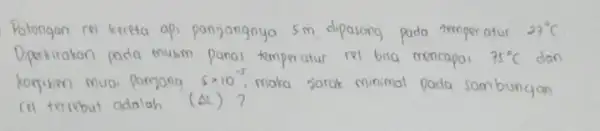 Potongan rel kereta api panjangnya 5m, dipasang pada temperatur 27°C
Diperkirakan pada musim panas temperatur rel bisa mencapai 75°C dan
koefisien muai panjang 5×10⁻⁵, maka jarak minimal pada sambungan
rel tersebut adalah (Δl) ?